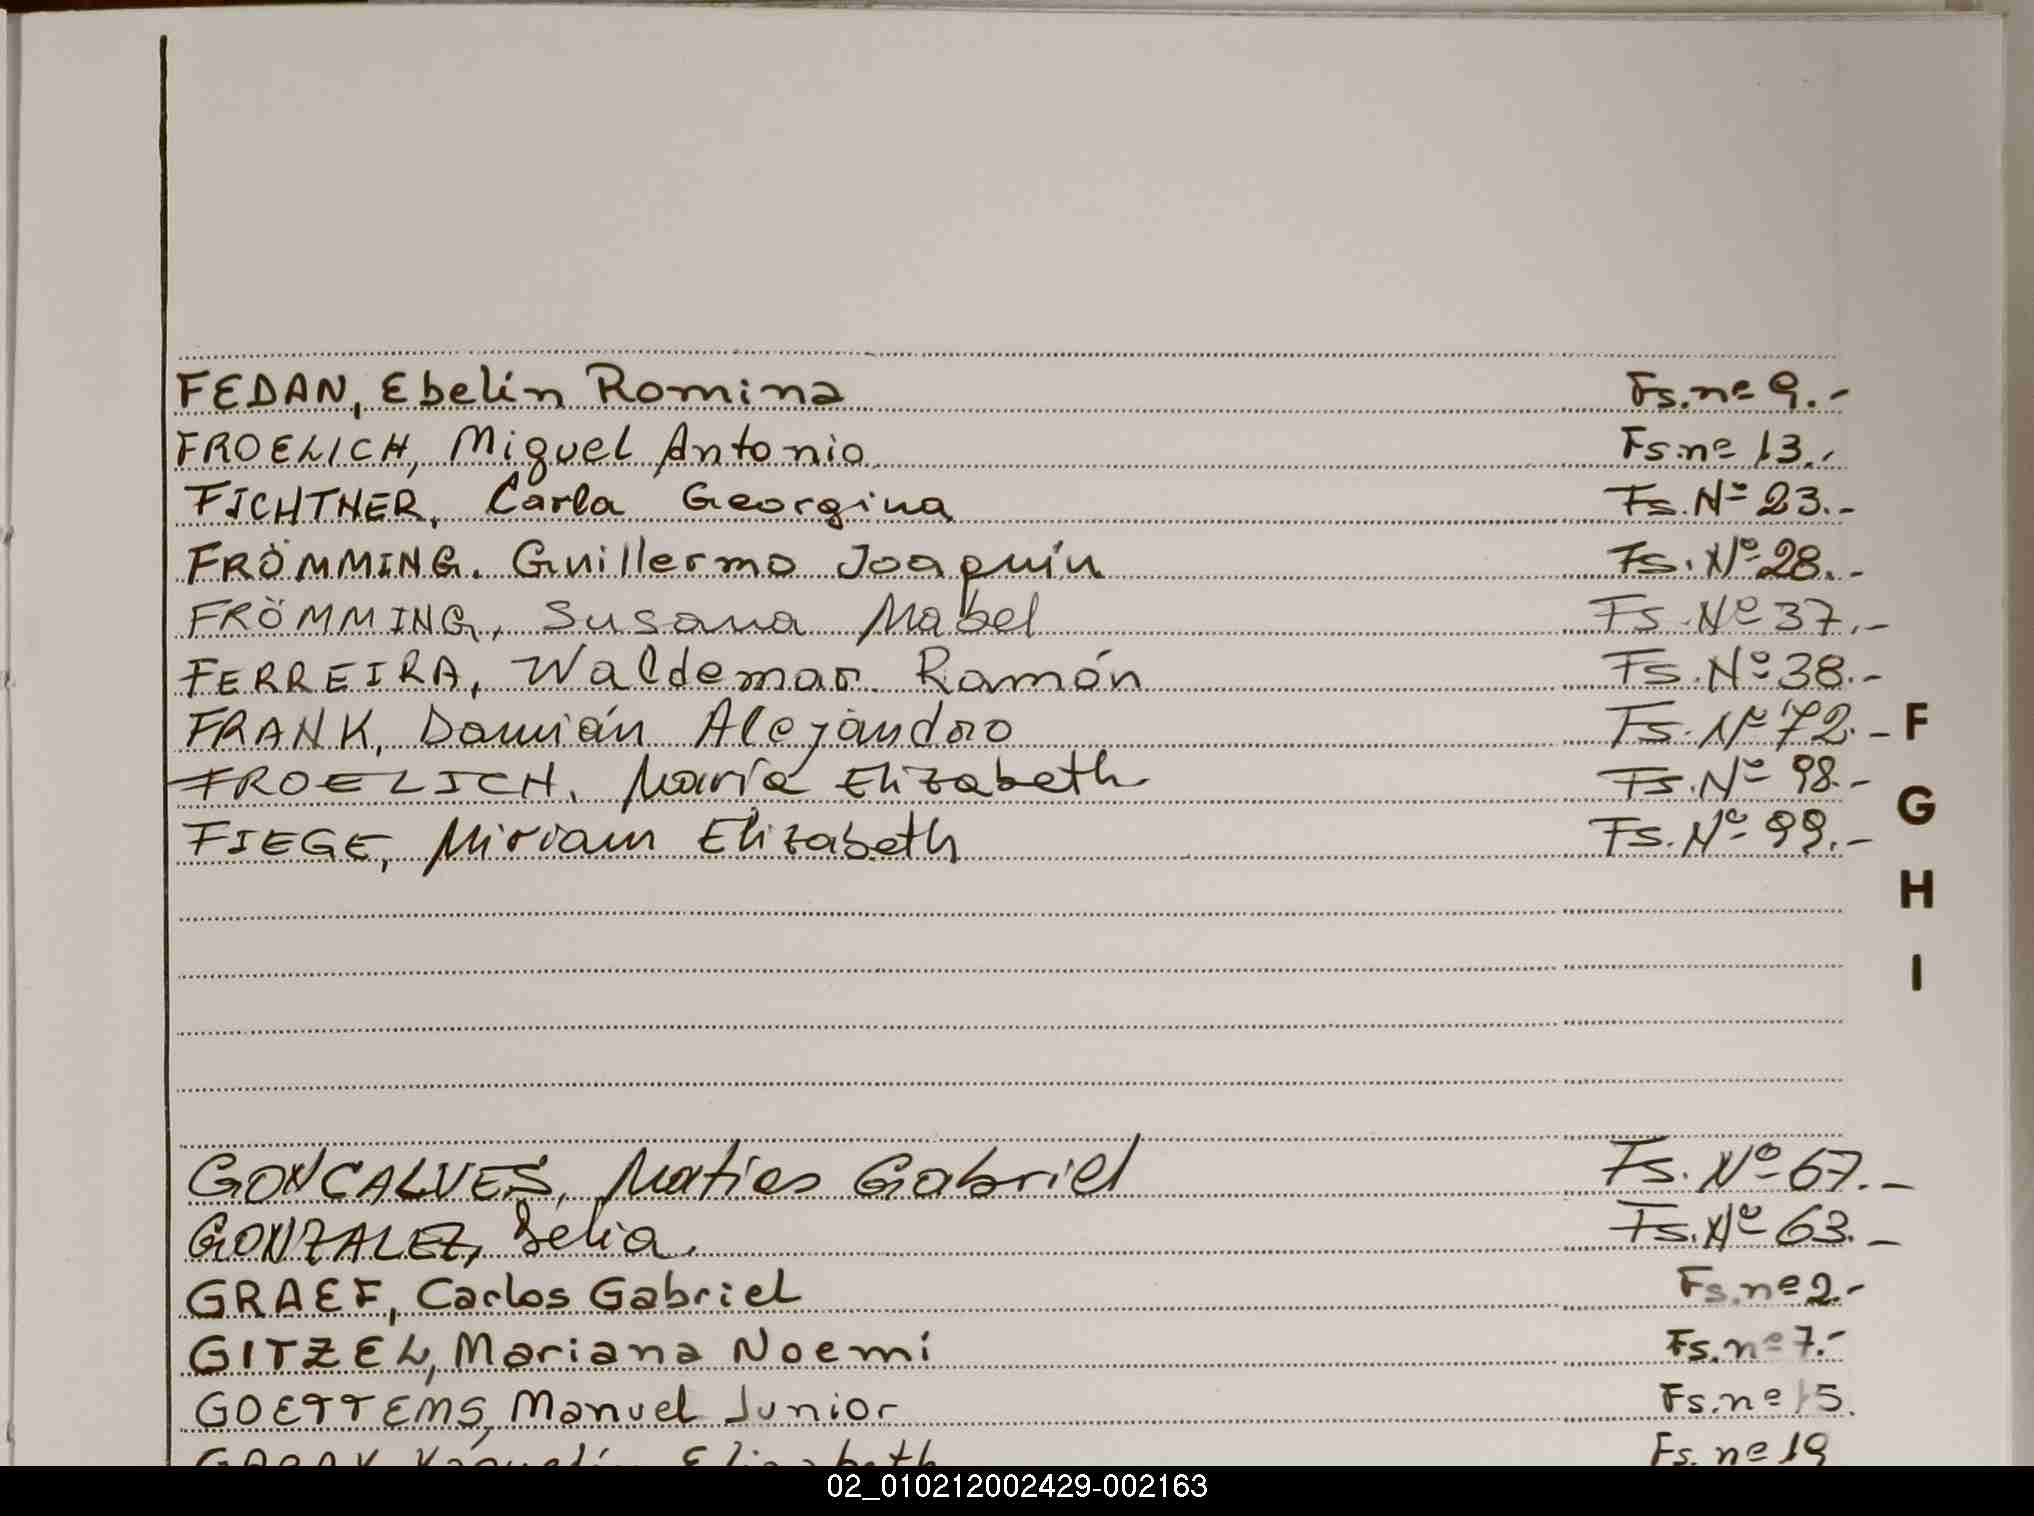 FEDAN, Ebelín Romina Fs. nº 9.-
FROELICH, Miguel Antonio Fs. nº 13.-
FICHTNER, Carla Georgina Fs. Nº 23.-
FRÖMMING. Guillermo Joaquín Fs. Nº 28.-
FRÖMMING, Susana Mabel Fs. Nº 37.-
FERREIRA, Waldemar Ramón Fs. Nº 38.-
FRANK, Damián Alejandro Fs. Nº 72.-
FROELICH. María Elizabeth Fs. Nº 98.-
FIEGE, Miriam Elizabeth Fs. Nº 99.-
F
G
H
I
GONCALVES, Matias Gabriel Fs. Nº 67.-
GONZALEZ, Fs. Nº 63.-
GRAEF, Carlos Gabriel Fs. nº 2.-
GITZEL, Mariana Noemí Fs. nº 7.-
GOETTEMS, Manuel Junior Fs. nº 15.
Fs. nº 19
02_010212002429-002163